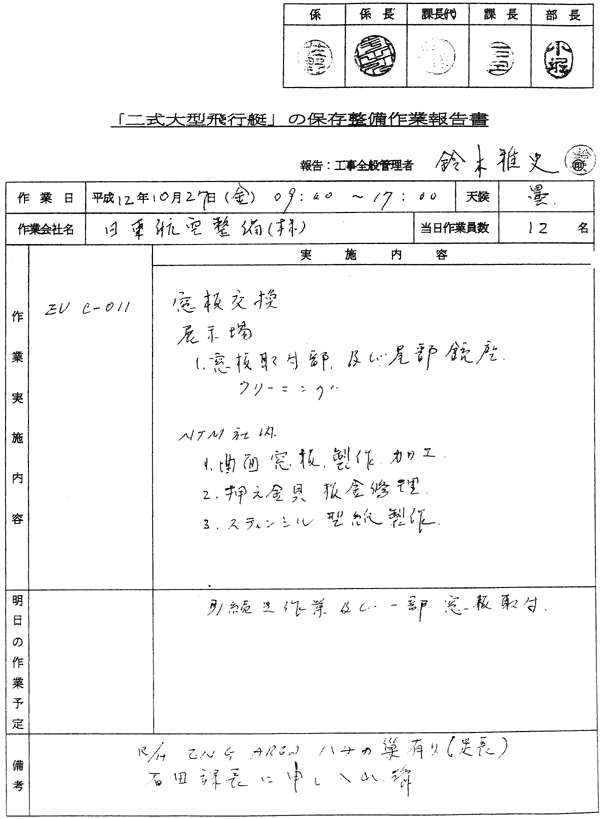 係 係長 課長代 課長 部長
「二式大型飛行艇」の保存整備作業報告書
報告：工事全般管理者 鈴木雅史
作業日 平成12年10月27日(金) 09:00 ～17:00 天候 曇
作業会社名 日東航空整備(株) 当日作業員数 12 名
実施内容
作業実施内容
C-011
窓板交換
展示場
1.窓板取付部、及び尾部銃座
クリーニング
NTM社内
1.曲面窓板、製作、加工
2.押え金具 板金修理
3.スティンシル型紙製作
明日の作業予定
引続き作業及び一部窓板取付
備考
R/H ENG AREA ハチの巣有り(足長)
石田課長に申し入れ、済